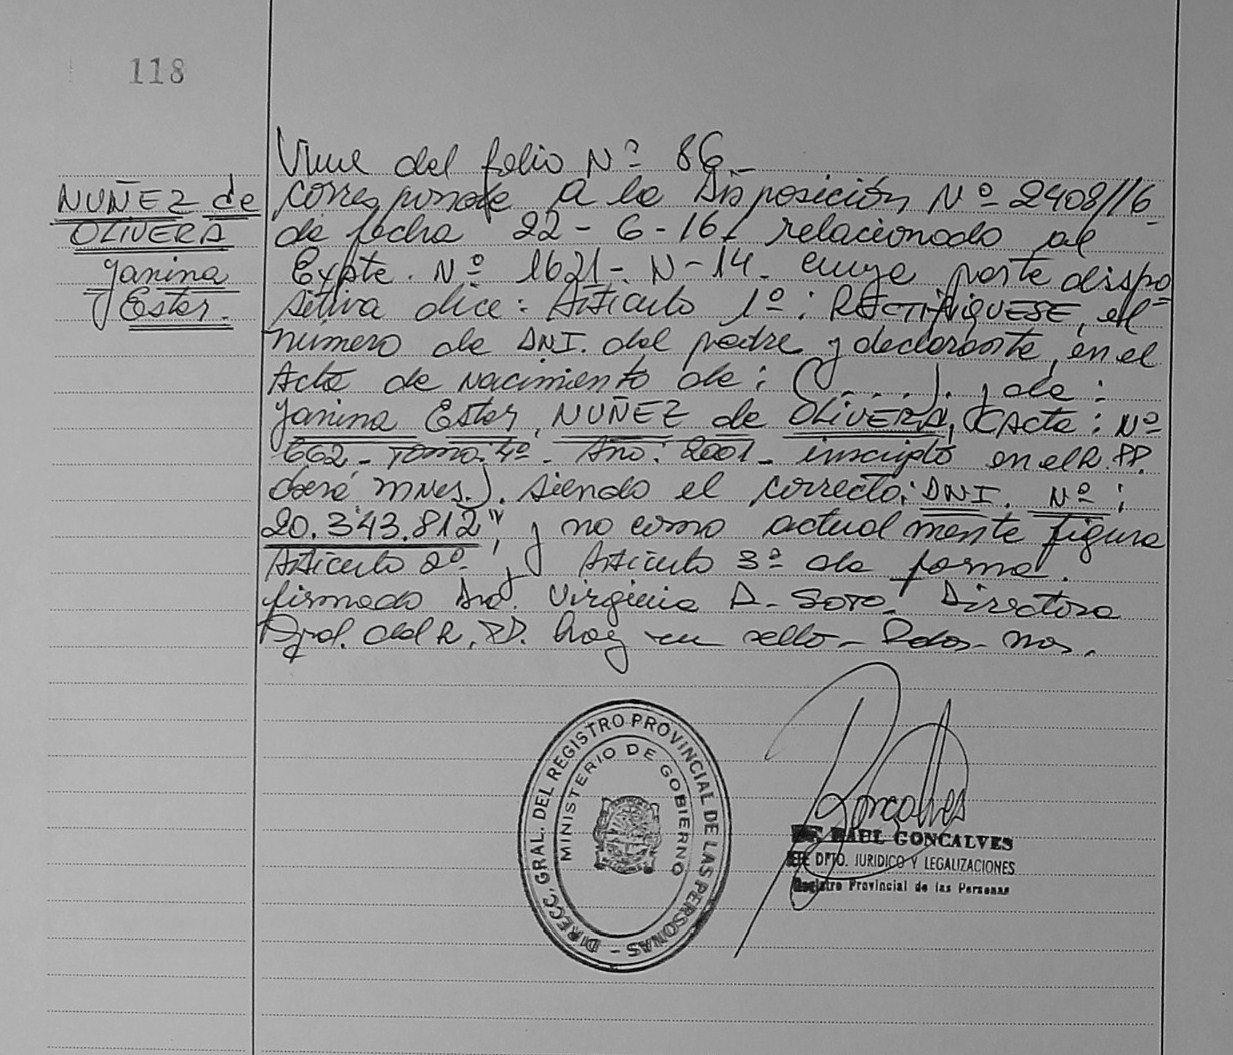 118
NUÑEZ de
OLIVERA
Yanina
Ester.
Viene del folio Nº 86_
corresponde a la Disposición Nº 2408/16_
de fecha 22-6-16, relacionado al
Expte. Nº 1621-N-14_ cuya parte dispo
sitiva dice: Artículo 1º: RECTIFIQUESE, el
numero de DNI. del padre y declarante, en el
Acta de Nacimiento de: (......). y de:
Yanina Ester, NUÑEZ de OLIVERA, (Acta: Nº
662_ Tomo: 4º_ Año: 2001_ inscripto en el R. PP.
Mnes.). siendo el correcto: DNI. Nº:
20.343.812", y no como actualmente figura
Artículo 2º y Artículo 3º de forma.
firmado Dra. Virginia A. Soto. Directora
Gral. del R. PP. hay un sello_ Pdas- Mnes.
DIRECC. GRAL. DEL REGISTRO PROVINCIAL DE LAS PERSONAS -
MINISTERIO DE GOBIERNO
Goncalves
RAUL GONCALVES
DPTO. JURIDICO Y LEGALIZACIONES
Registro Provincial de las Personas